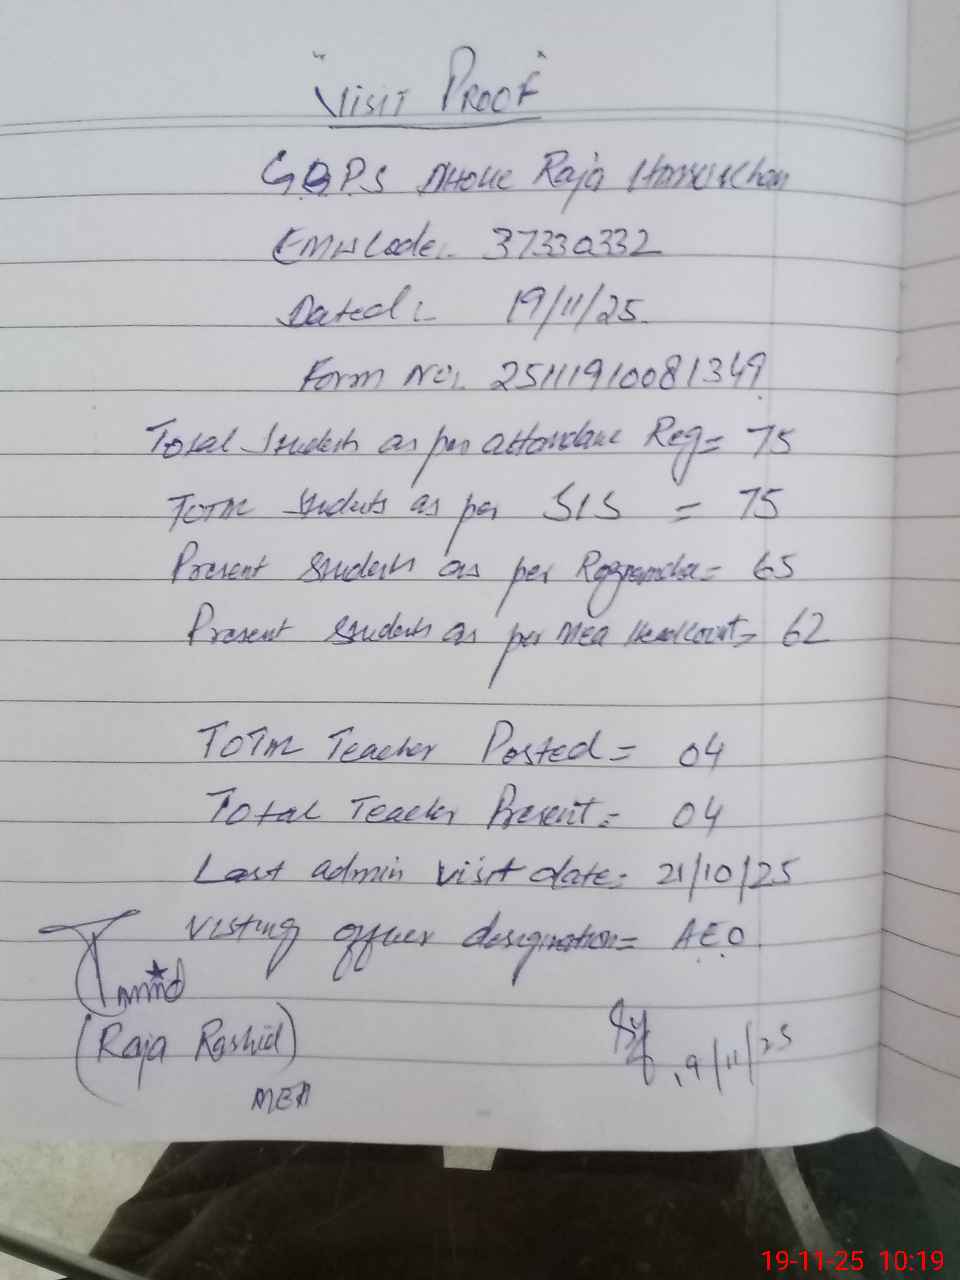 "Visit Proof"
GBPS Dhoke Raja
EMIS Code:- 37330332
Dated:- 19/11/25.
Form No:. 25111910081349
Total Students as per attendance Reg= 75
Total Students as per SIS = 75
Present Students as per Roznamcha= 65
Present Students as per Mea Headcount= 62
Total Teacher Posted= 04
Total Teacher Present= 04
Last admin visit date: 21/10/25
Visting officer designation= AEO.
(Raja Rashid)
MEA
19/11/25
19-11-25 10:19